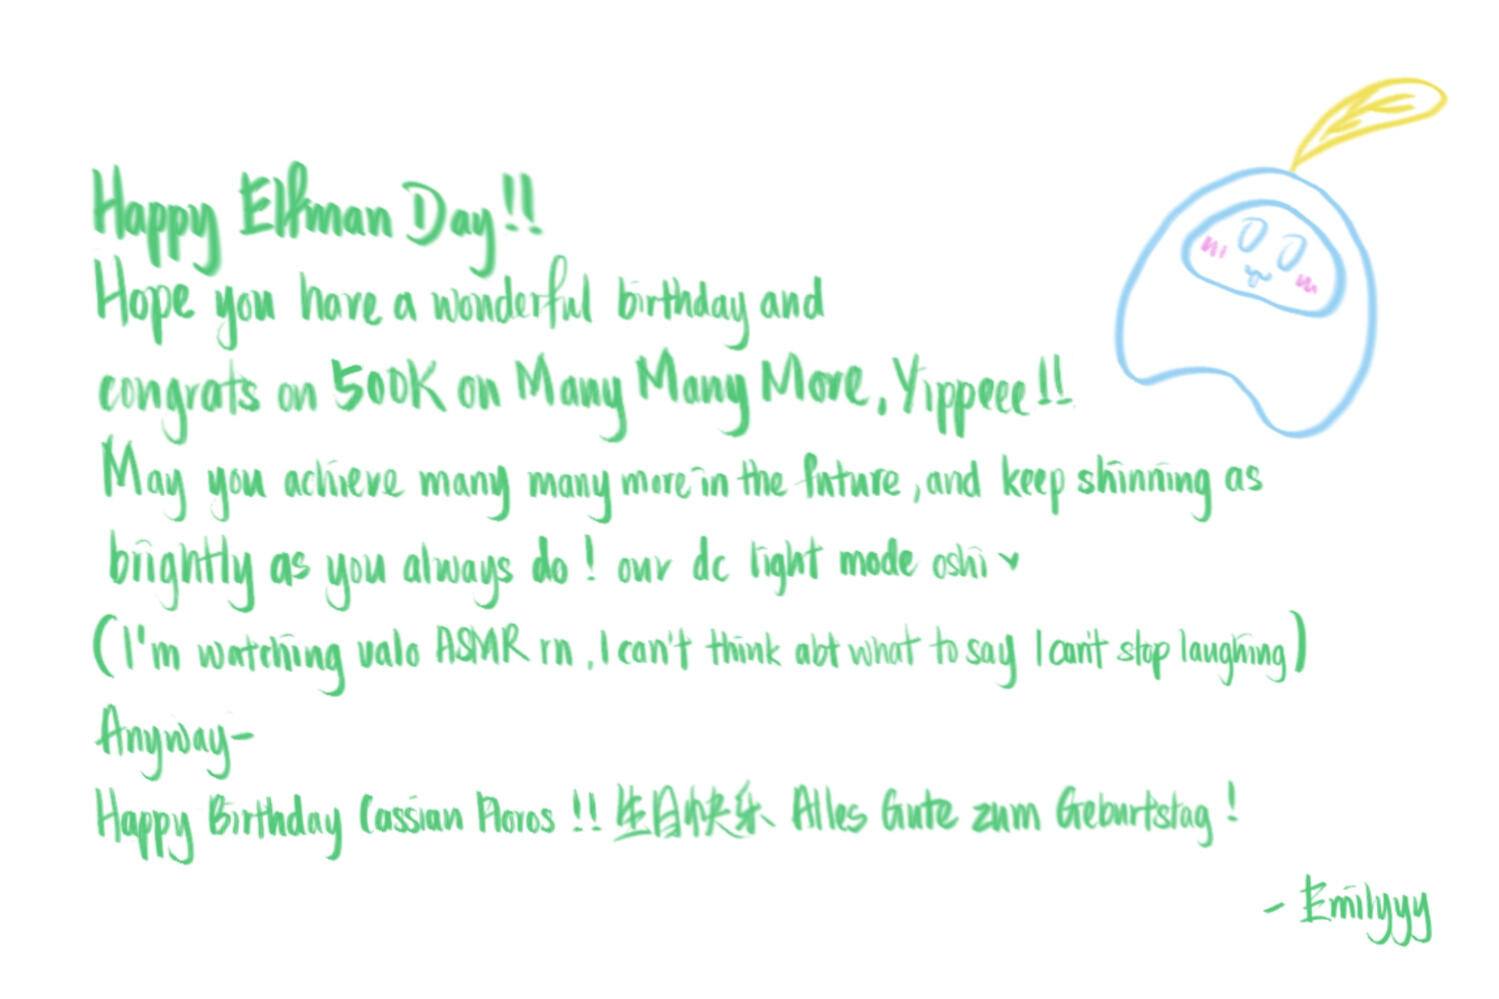 Happy Elfman Day!!
Hope you have a wonderful birthday and
congrats on 500K on Many Many More, Yippeee!!
May you achieve many many more in the future, and keep shinning as
brightly as you always do! our dc light mode oshi
(I'm watching valo ASMR rn, I can't think abt what to say I can't stop laughing)
Anyway-
Happy Birthday Cassian Floros!! 生日快乐 Alles Gute zum Geburtstag!
- Emilyyy